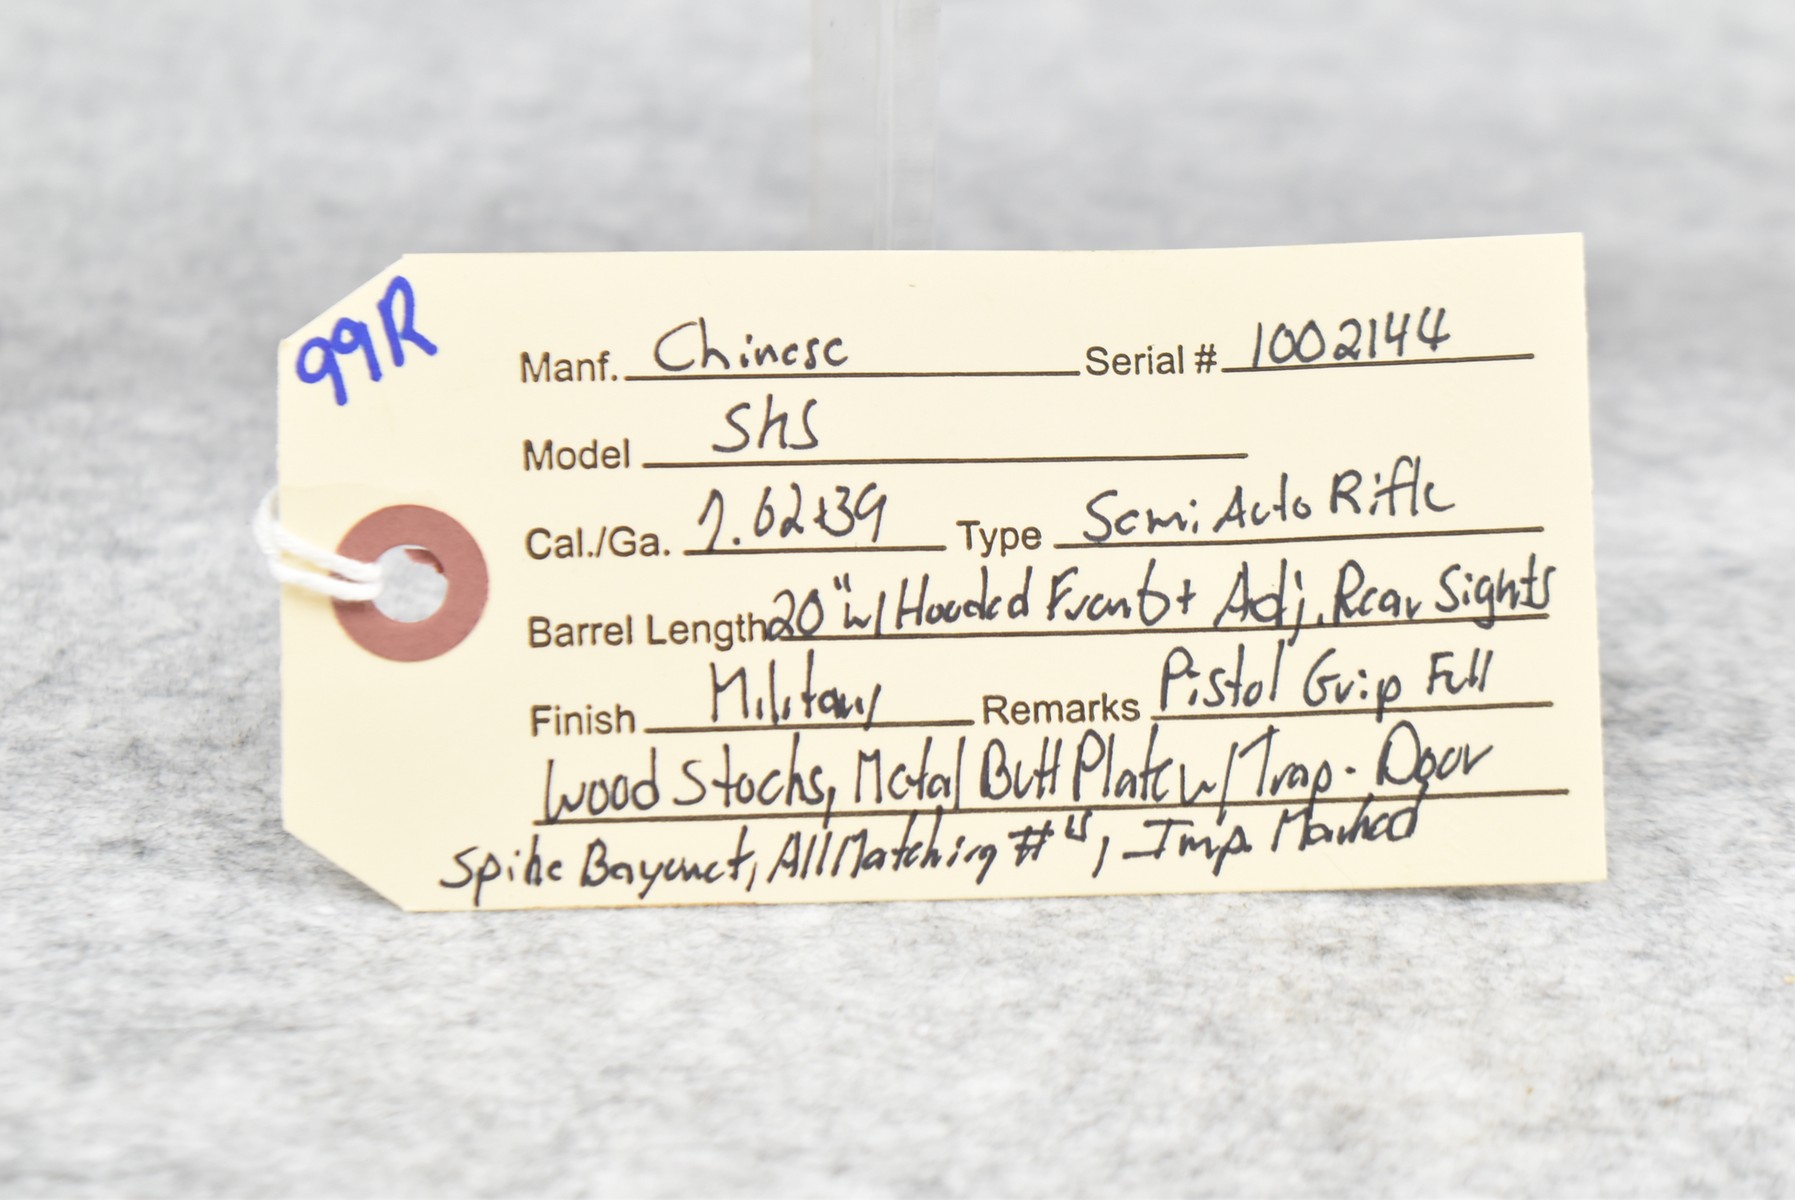 99R
Manf. Chinese Serial # 1002144
Model SKS
Cal./Ga. 7.62x39 Type Semi Auto Rifle
Barrel Length 20" w/ Hooded Front + Adj. Rear Sights
Finish Military Remarks Pistol Grip Full
Wood Stocks, Metal Butt Plate w/ Trap-Door
Spike Bayonet, All Matching #'s, Imp. Marked